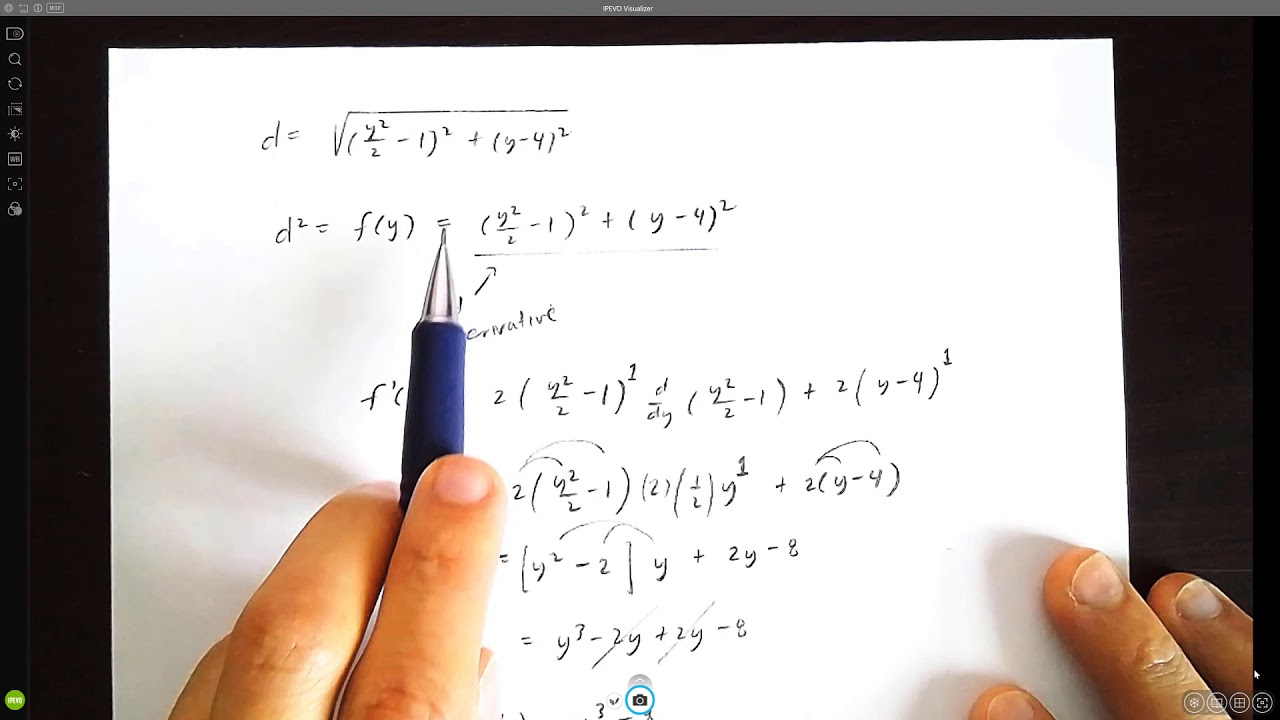 IPEVO Visualizer
MIXE
WB
d = √((y²/2 - 1)² + (y-4)²)
d² = f(y) = (y²/2 - 1)² + (y-4)²
erivative
f'( 2(y²/2 - 1)¹ d/dy (y²/2 - 1) + 2(y-4)¹
2(y²/2 - 1)(2)(1/2)y¹ + 2(y-4)
= [y² - 2]y + 2y - 8
= y³ - 2y + 2y - 8
IPEVO